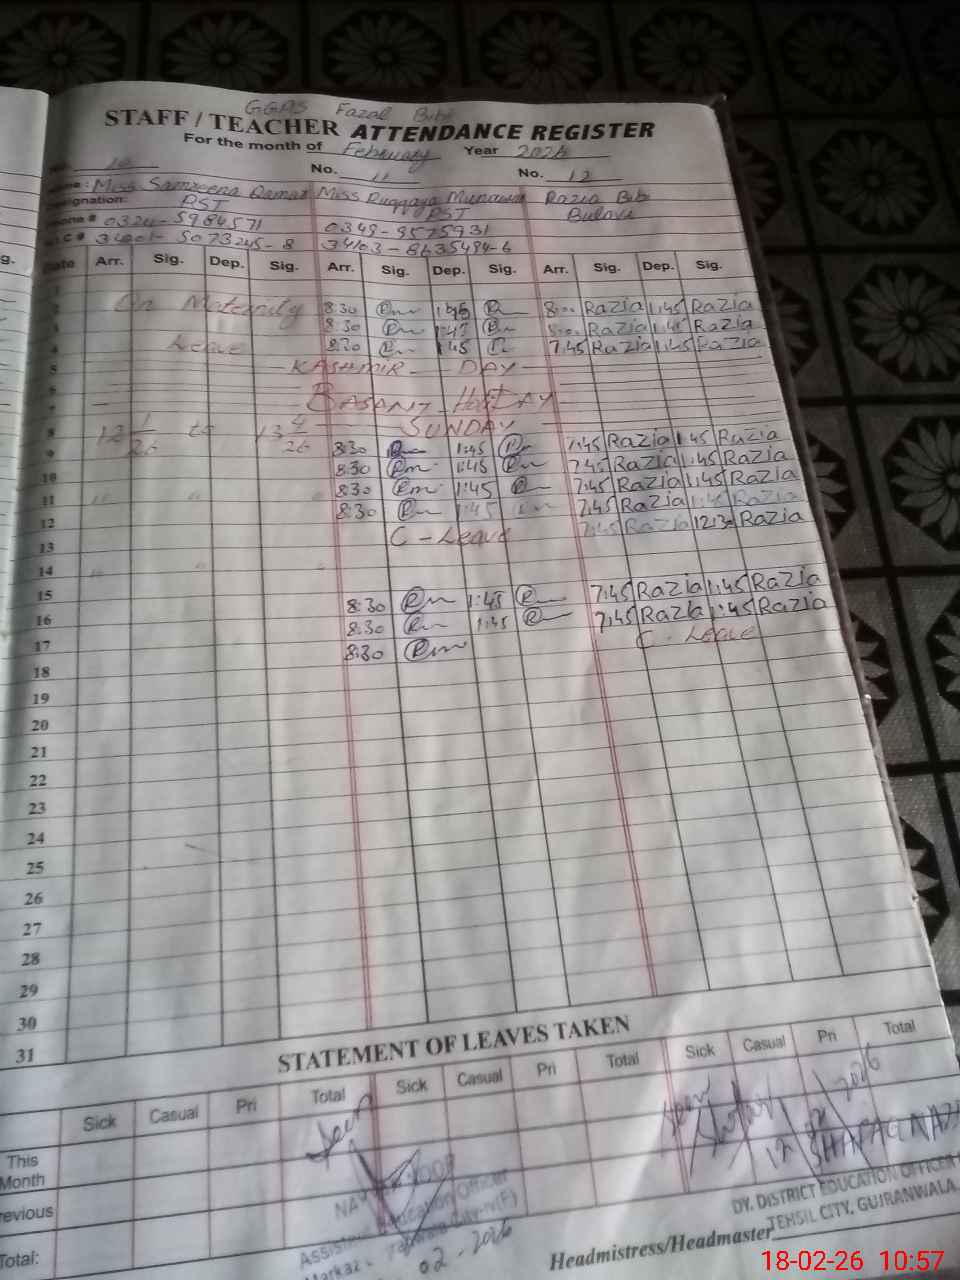 GGPS Fazal Bibi
STAFF / TEACHER ATTENDANCE REGISTER
For the month of February Year 2026
No. 10 No. 11 No. 12
Miss Samreena Qamar Miss Ruqqaya Munawar Razia Bibi
Designation: PST PST Bulava
Phone # 0324-5984571 0349-9575931
34101-5073245-8 34103-8635494-6
Date Arr. Sig. Dep. Sig. Arr. Sig. Dep. Sig. Arr. Sig. Dep. Sig.
1
2 On Maternity 8:30 1:45 8:00 Razia 1:45 Razia
3 8:30 1:45 8:00 Razia 1:45 Razia
4 Leave 8:30 1:45 7:45 Razia 1:45 Razia
5 KASHMIR DAY
6 BASANT HoliDAY
7
8 12 1/26 to 13 4/26 SUNDAY
9 8:30 1:45 7:45 Razia 1:45 Razia
10 8:30 1:45 7:45 Razia 1:45 Razia
11 " " " 8:30 1:45 7:45 Razia 1:45 Razia
12 8:30 1:45 7:45 Razia 1:45 Razia
13 C - Leave 7:45 Razia 12:30 Razia
14 " " "
15
16 8:30 1:45 7:45 Razia 1:45 Razia
17 8:30 1:45 7:45 Razia 1:45 Razia
18 8:30 C - Leave
19
20
21
22
23
24
25
26
27
28
29
30
31
STATEMENT OF LEAVES TAKEN
Sick Casual Pri Total Sick Casual Pri Total Sick Casual Pri Total
This Month
Previous
Total:
Assistant Education Officer
Markaz
02.2026
2026
DY. DISTRICT EDUCATION OFFICER
TEHSIL CITY, GUJRANWALA
Headmistress/Headmaster
18-02-26 10:57